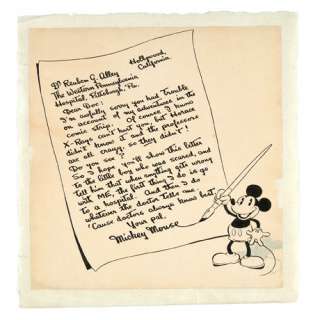 Hollywood,
California.
Dr Reuben G Alley
The Western Pennsylvania
Hospital, Pittsburgh, Pa.
Dear Doc:
I'm awfully sorry you had trouble
on account of my adventures in the
comic strip. Of course I know
X-Rays can't hurt you, but Horace
didn't know it and the professors
are all crazy, so they didn't!
Do you see?
So I hope you'll show this letter
to the little boy who was scared, and
tell him that when anything gets wrong
with ME, the first thing I do is go
to a hospital. And then I do
whatever the doctor tells me
'Cause doctors always know best.
Your pal,
Mickey Mouse